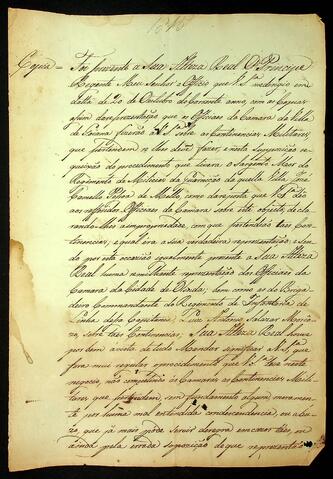 1815
Copia = Foi prezente a Sua Alteza Real O Principe
Regente Meu Senhor o Officio que V. Sª. me dirigio em
datta de 20 de Outubro do corrente anno, com as Copias
assim da reprezentação que os Officiaes da Camara da Villa
de Goiana fizerão a V. Sª. sobre as Continencias Militares,
que pertendem se lhes devem fazer, e nesta suppozição re-
quizição do procedimento que tivera o Sargento Mor do
Regimento de Milicias da Guarnição daquella Villa José
Camello Pessoa de Mello, como da resposta que V. Sª. deo
aos referidos Officiaes da Camara sobre este objecto, de cla-
rando-lhes a impropriedade, com que pertendião taes Con-
tinencias, e qual era a sua verdadeira reprezentação: e Sen-
do por esta occazião igualmente prezente a Sua Alteza
Real huma semilhante reprezentação dos Officiaes da
Camara da Cidade de Olinda, bem como a do Briga-
deiro Commandante do Regimento de Infantaria de
Linha dessa Capitania, Luiz Antonio Salazar Mosco-
zo, sobre taes Continencias; o Sua Alteza Real houve
por bem á vista de tudo Mandar significar a V. Sª. que
fora mui regular o procedimento que V. Sª. teve neste
negocio, não competindo ás Camaras as Continencias Mili-
tares, que pertendem, sem fundamento algum, meramen-
te por huma mal entendida condescendencia, ou abu-
zo, que já mais póde servir de regra em cazos taes, ou
ainda pela errada suppozição de que reprezentão